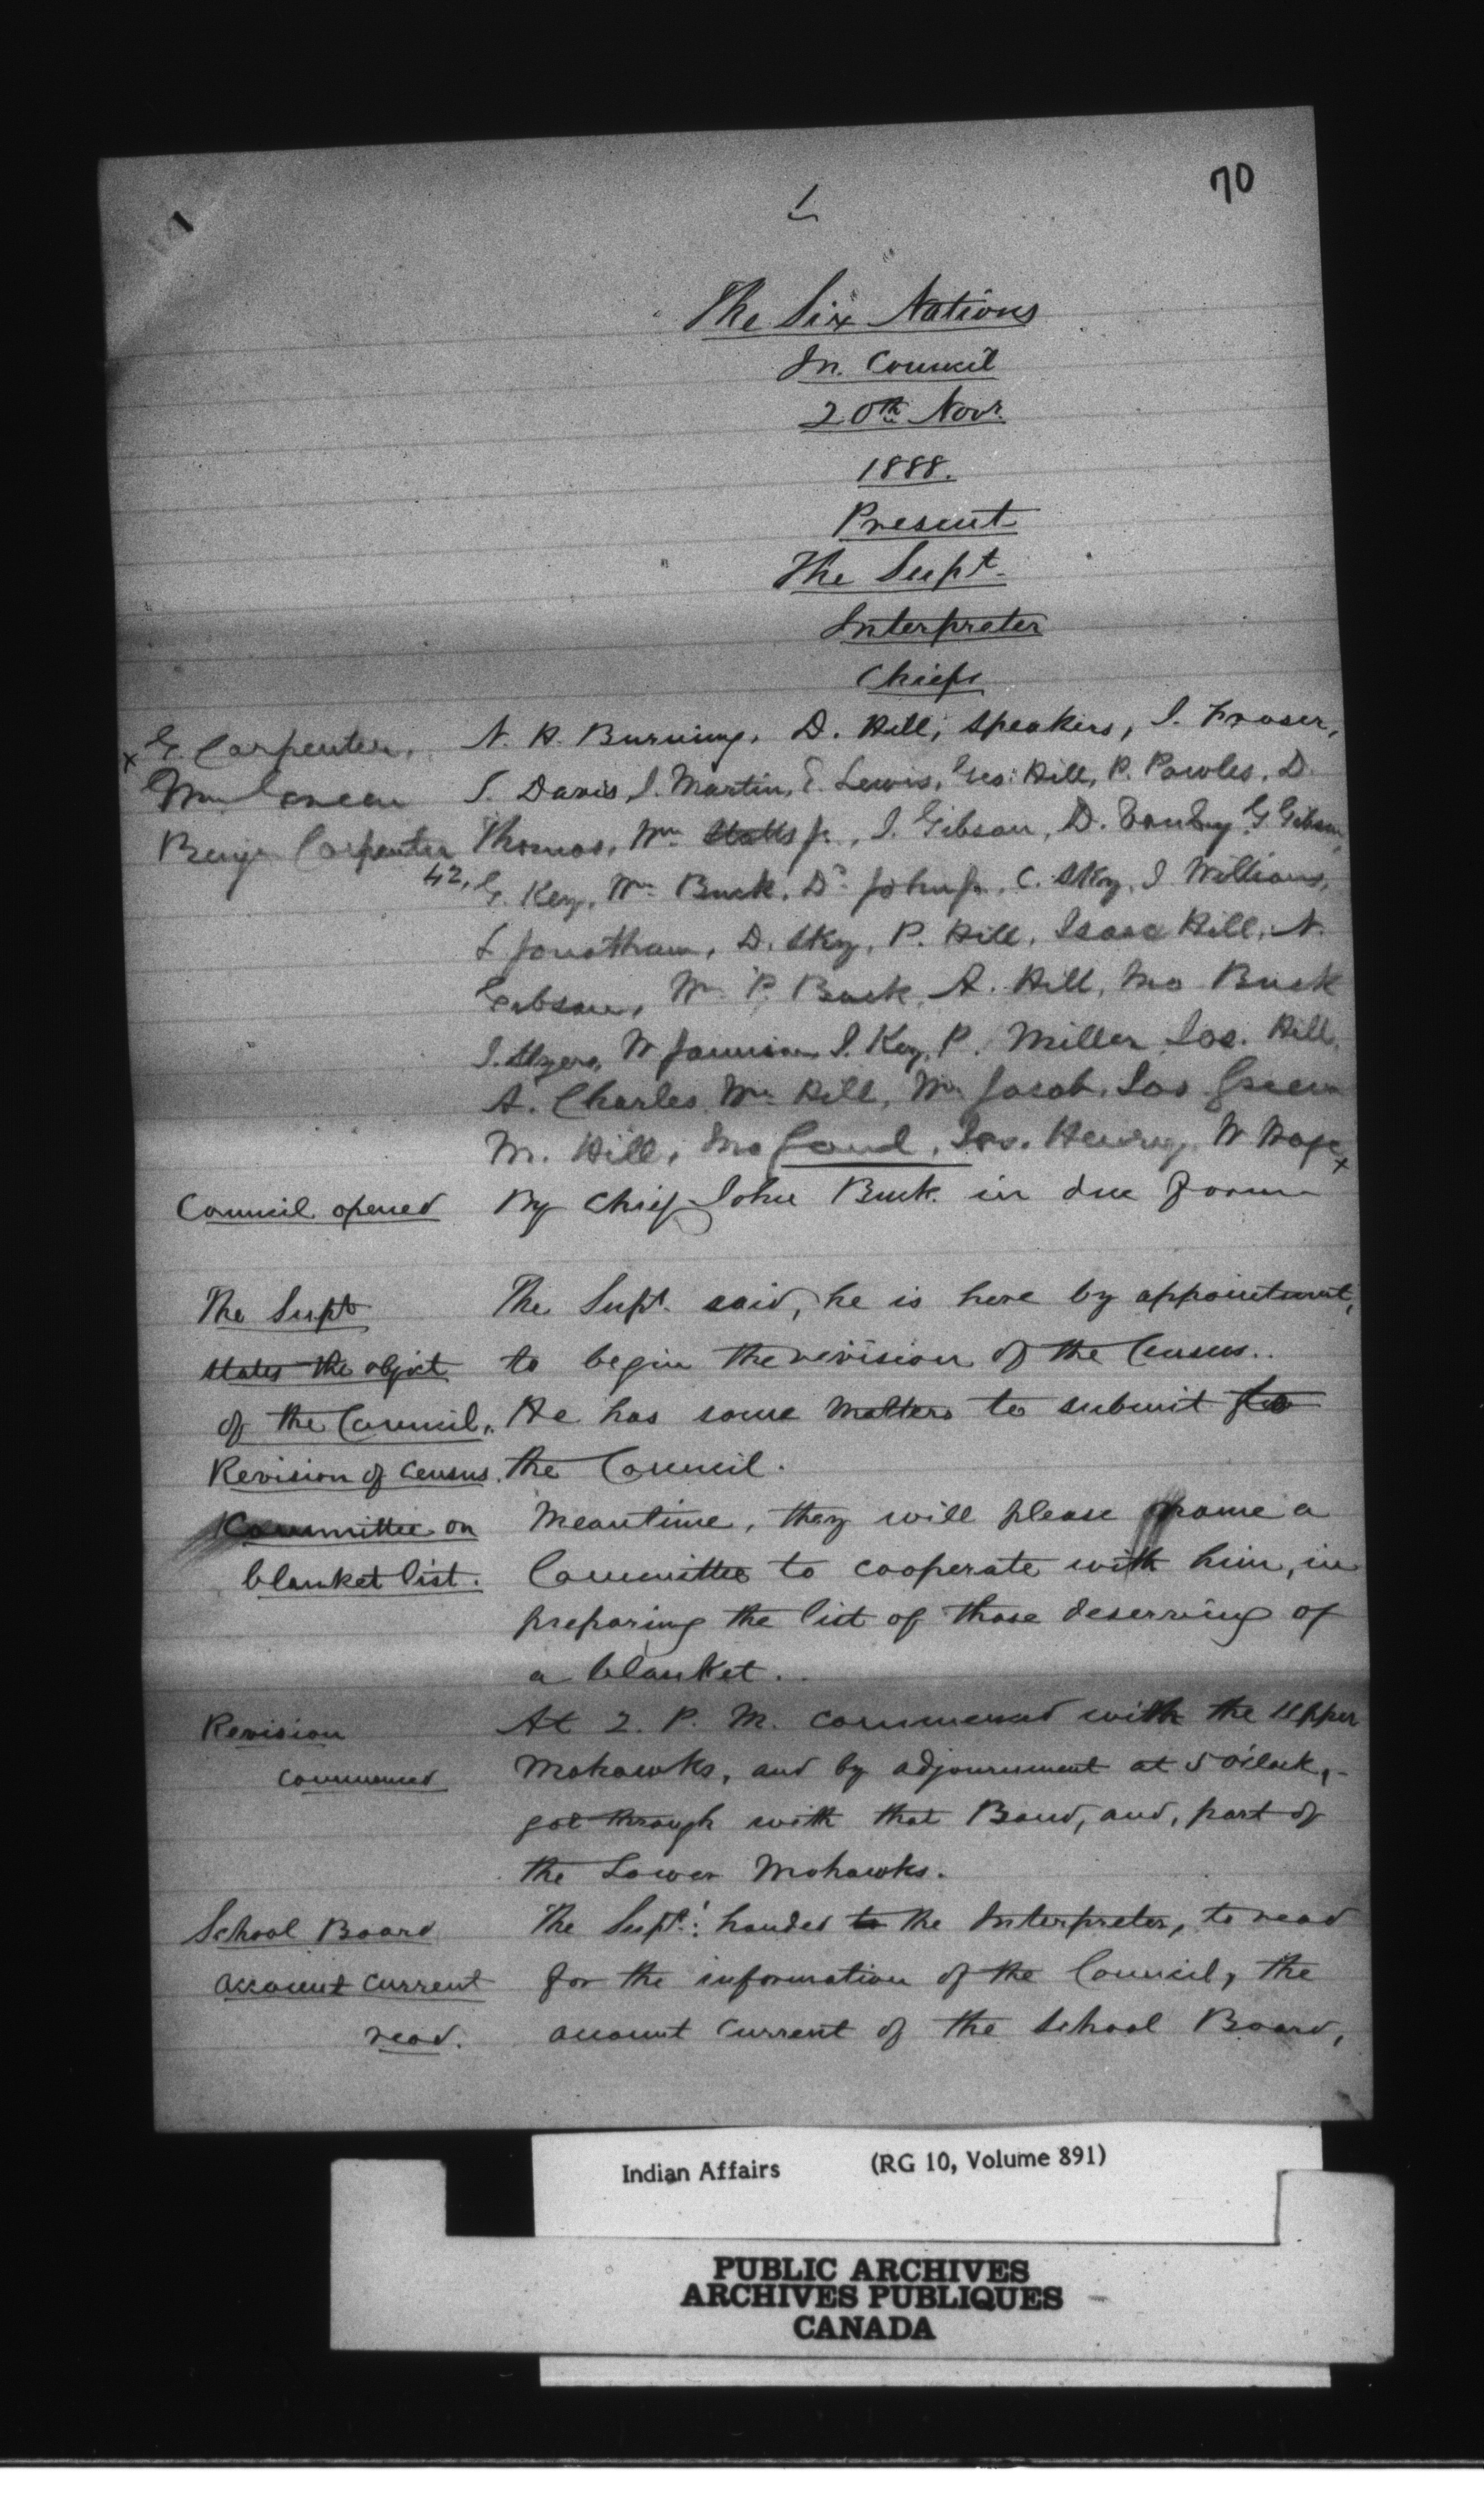 70
1
The Six Nations
In Council
20th Novr.
1888.
Present
The Supt.
Interpreter
Chiefs
x G. Carpenter,
Wm
Benjn Carpenter
42,
N. H. Burning, D. Hill, Speakers, J. Fraser,
J. Davis, J. Martin, E. Lewis, Geo. Hill, P. Powles, D.
Thomas, Wm Jr., J. Gibson, D. G Gibson,
G. Key, Wm Buck, D. John Jr., C. Sky, J Williams,
L Jonathan, D. Sky, P. Hill, Isaac Hill, N.
Gibson, Wm P. Buck, A. Hill, Jno Buck
J. W Jamison J. Key, P. Miller, Jos. Hill,
A. Charles, Wm Hill, Wm Jacob, Jos Green
M. Hill, Jno Henry, W Wage x
Council opened
By Chief John Buck in due form
The Supt
states the object
of the Council,
Revision of Census.
The Supt. said, he is here by appointment,
to begin the revision of the Census..
He has some matters to submit to
the Council.
Committee on
blanket list.
Meantime, they will please name a
Committee to cooperate with him, in
preparing the list of those deserving of
a blanket..
Revision
commenced
At 2. P. M. commenced with the Upper
Mohawks, and by adjournment at 5 O'clock,-
got through with that Band, and, part of
the Lower Mohawks.
School Board
account current
read.
The Supt: handed to the Interpreter, to read
for the information of the Council, the
account current of the School Board,
Indian Affairs (RG 10, Volume 891)
PUBLIC ARCHIVES
ARCHIVES PUBLIQUES
CANADA